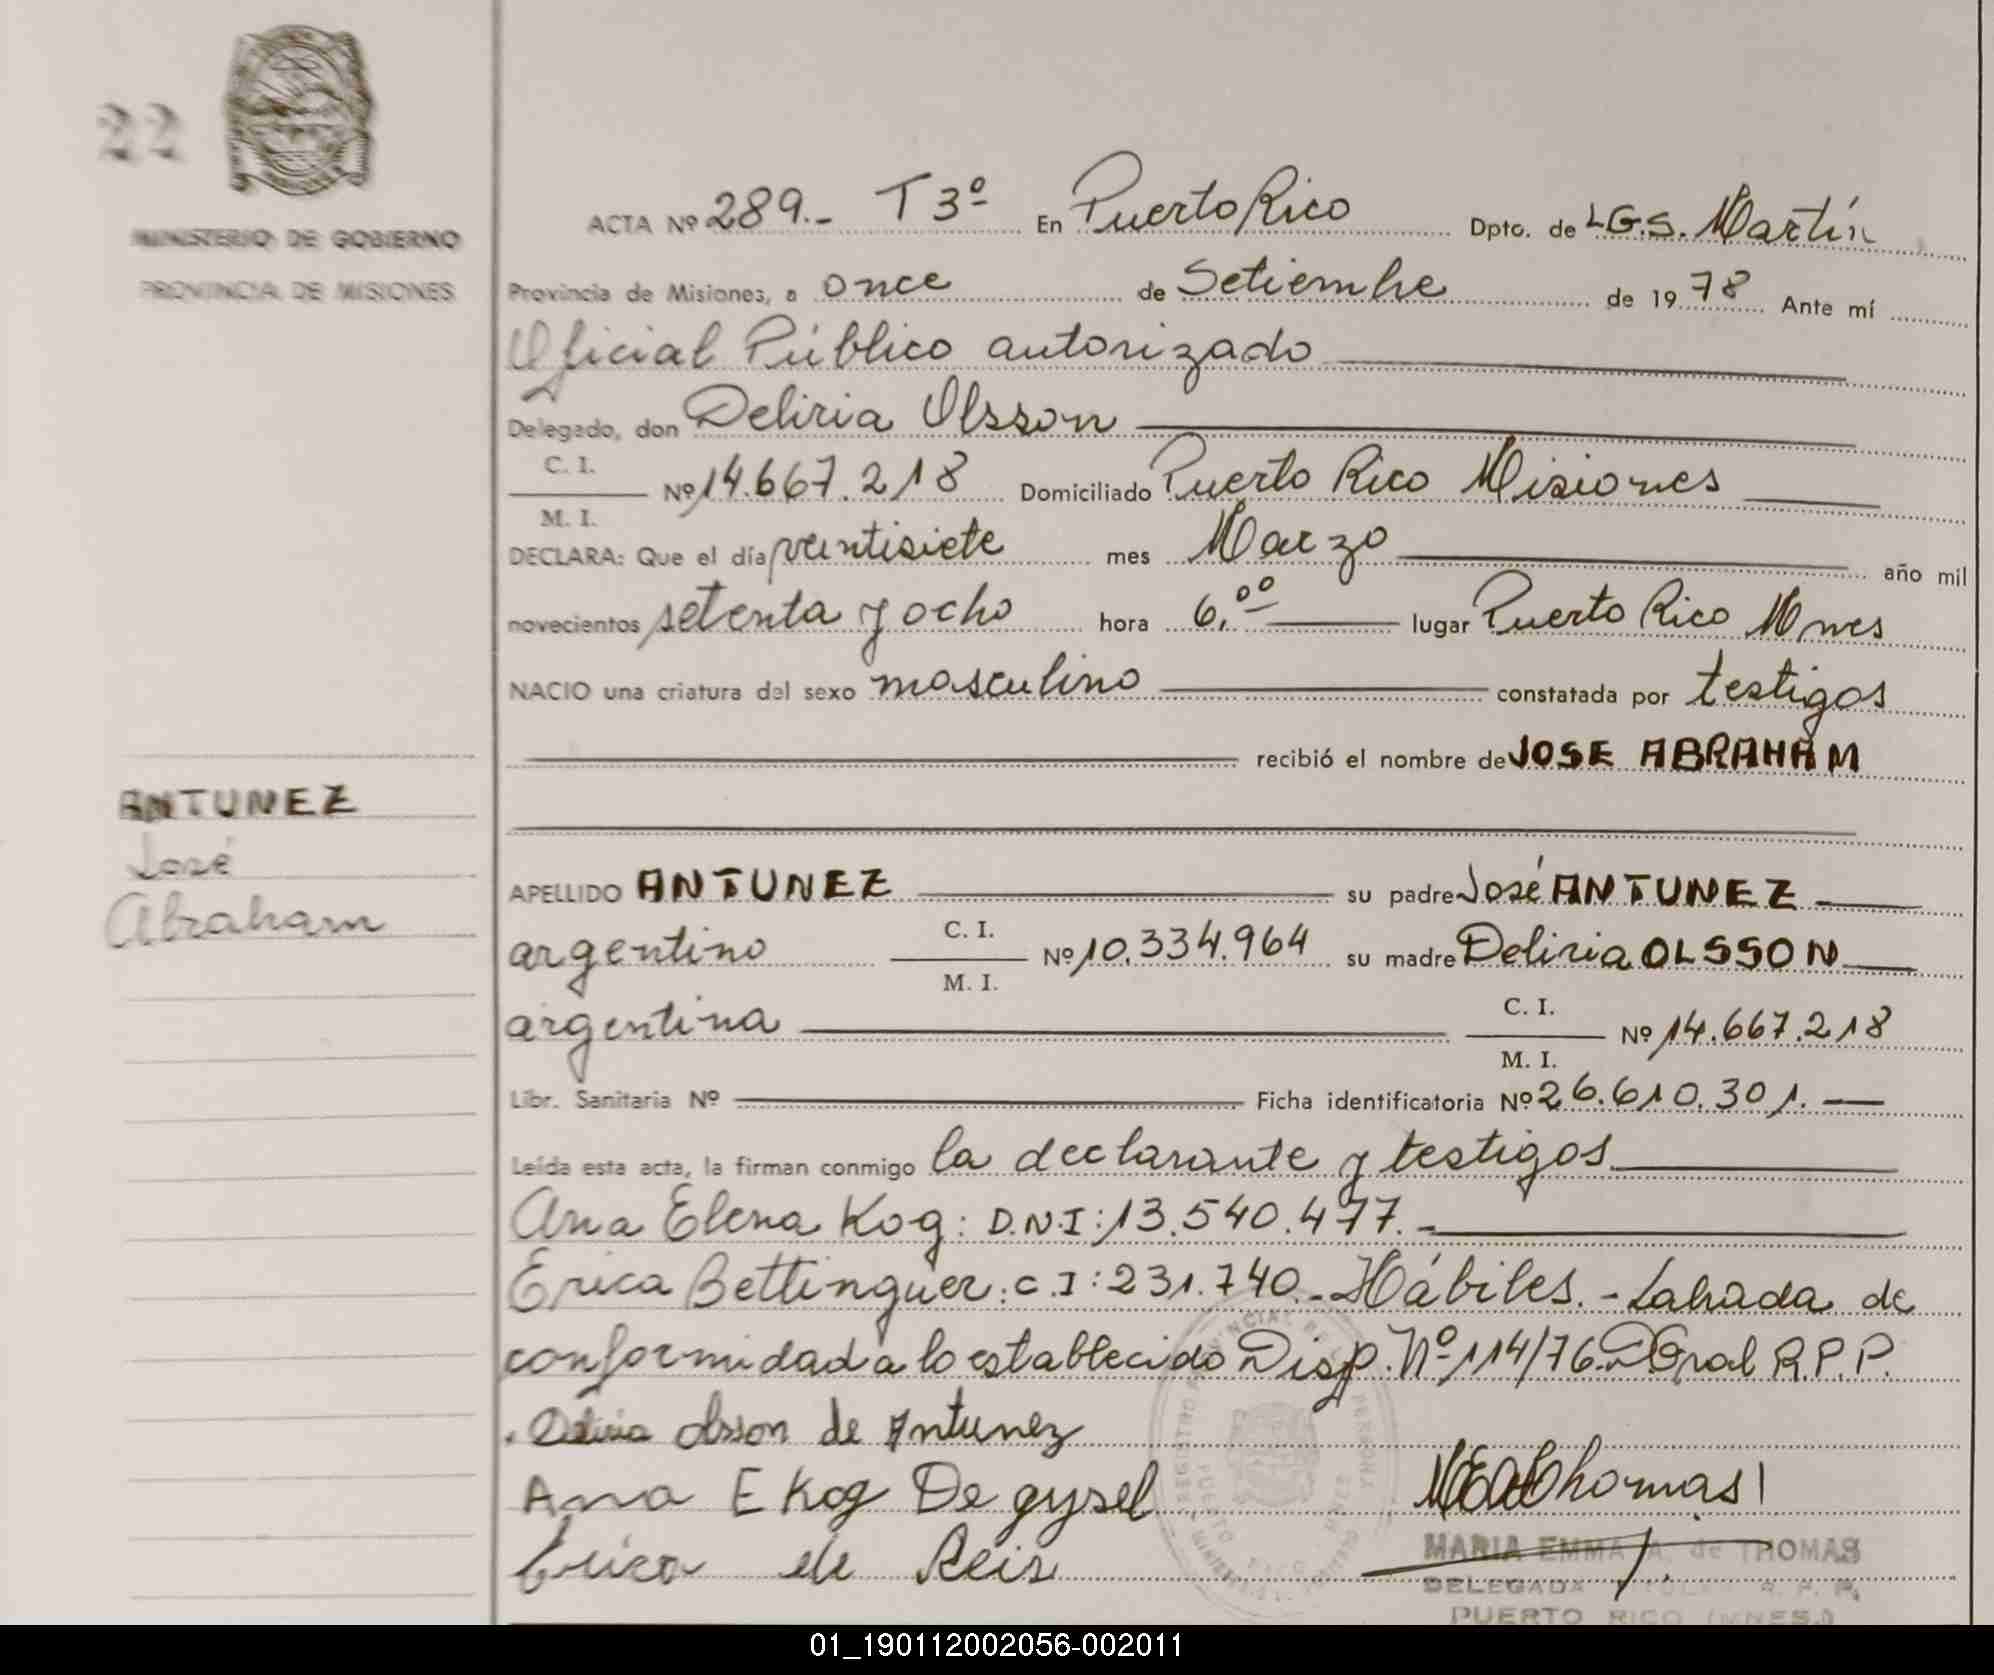 22
MINISTERIO DE GOBIERNO
PROVINCIA DE MISIONES
ACTA Nº 289.- T 3º En Puerto Rico Dpto. de L.G.S. Martín
Provincia de Misiones, a once de Setiembre de 19 78 Ante mí
Oficial Público autorizado
Delegado, don Deliria Olsson
C. I.
M. I. Nº 14.667.218 Domiciliado Puerto Rico Misiones
DECLARA: Que el día veintisiete mes Marzo año mil
novecientos setenta y ocho hora 6,00 lugar Puerto Rico Mnes
NACIO una criatura del sexo masculino constatada por testigos
recibió el nombre de JOSE ABRAHAM
ANTUNEZ
José
Abraham
APELLIDO ANTUNEZ su padre José ANTUNEZ
argentino C. I. M. I. Nº 10.334.964 su madre Deliria OLSSON
argentina C. I. M. I. Nº 14.667.218
Libr. Sanitaria Nº Ficha identificatoria Nº 26.610.301.
Leída esta acta, la firman conmigo la declarante y testigos
Ana Elena Kog: D.N.I: 13.540.477.-
Erica Bettinguer: C.I: 231.740.- Hábiles.- Labrada de
conformidad a lo establecido Disp. Nº 114/76 DGral R.P.P.
Deliria Olsson de Antunez
Ana E Kog De gysel
Erica de Reis
MEA de Thomas
MARIA EMMA A. de THOMAS
DELEGADA TITULAR R. P. P.
PUERTO RICO (MNES.)
01_190112002056-002011